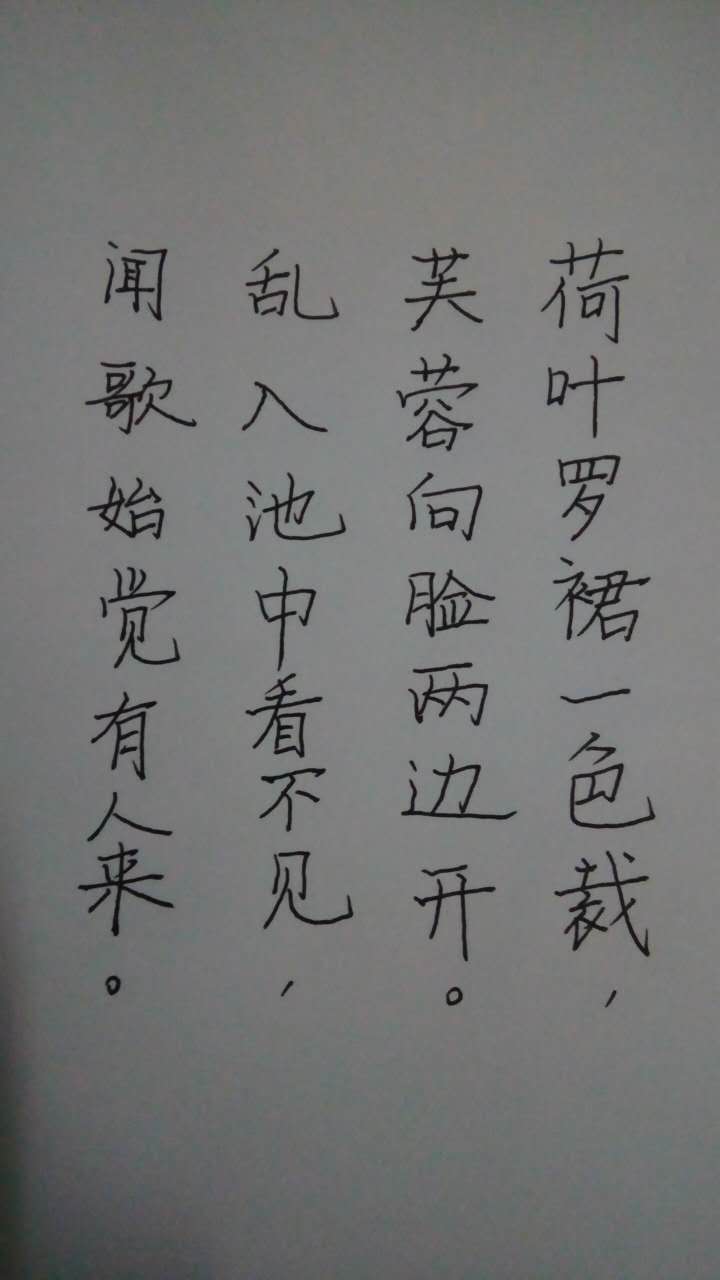 荷叶罗裙一色裁，
芙蓉向脸两边开。
乱入池中看不见，
闻歌始觉有人来。